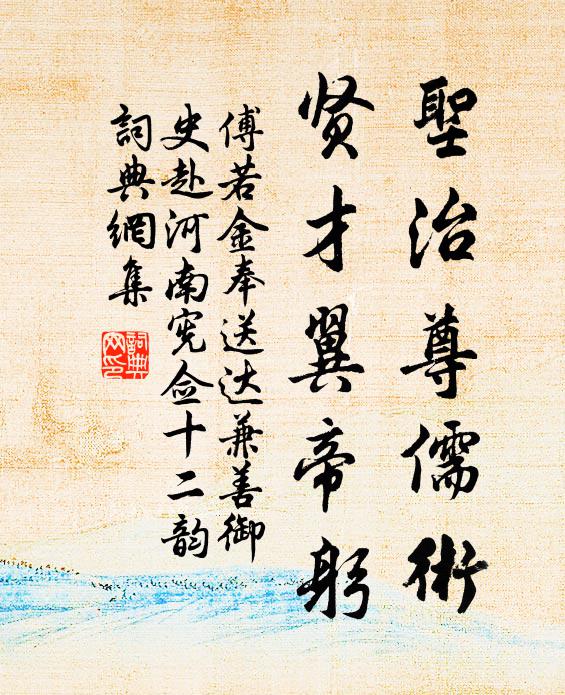 聖治尊儒術
贤才翼帝躬
傅若金奉送达兼善御
史赴河南宪佥十二韵
詞典網集
詞典
网印